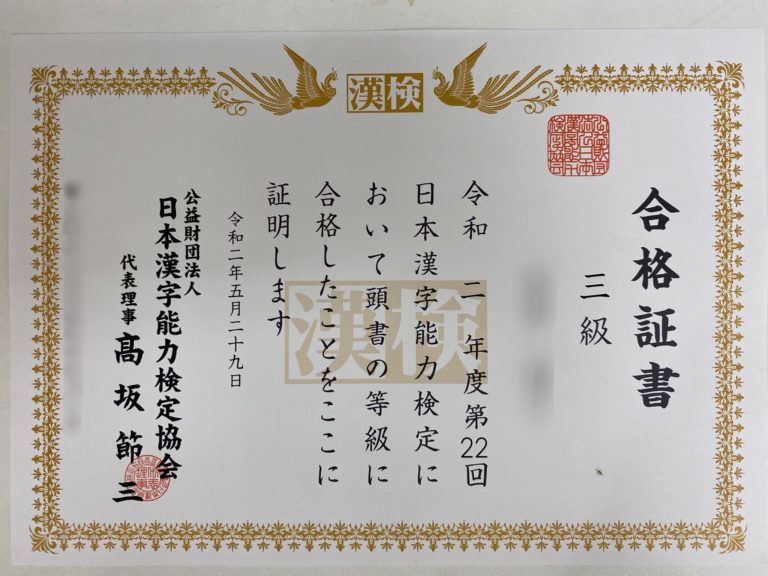 漢検
合格証書
三級
令和二年度第22回
日本漢字能力検定に
おいて頭書の等級に
合格したことをここに
証明します
漢検
令和二年五月二十九日
公益財団法人
日本漢字能力検定協会
代表理事 髙坂節三